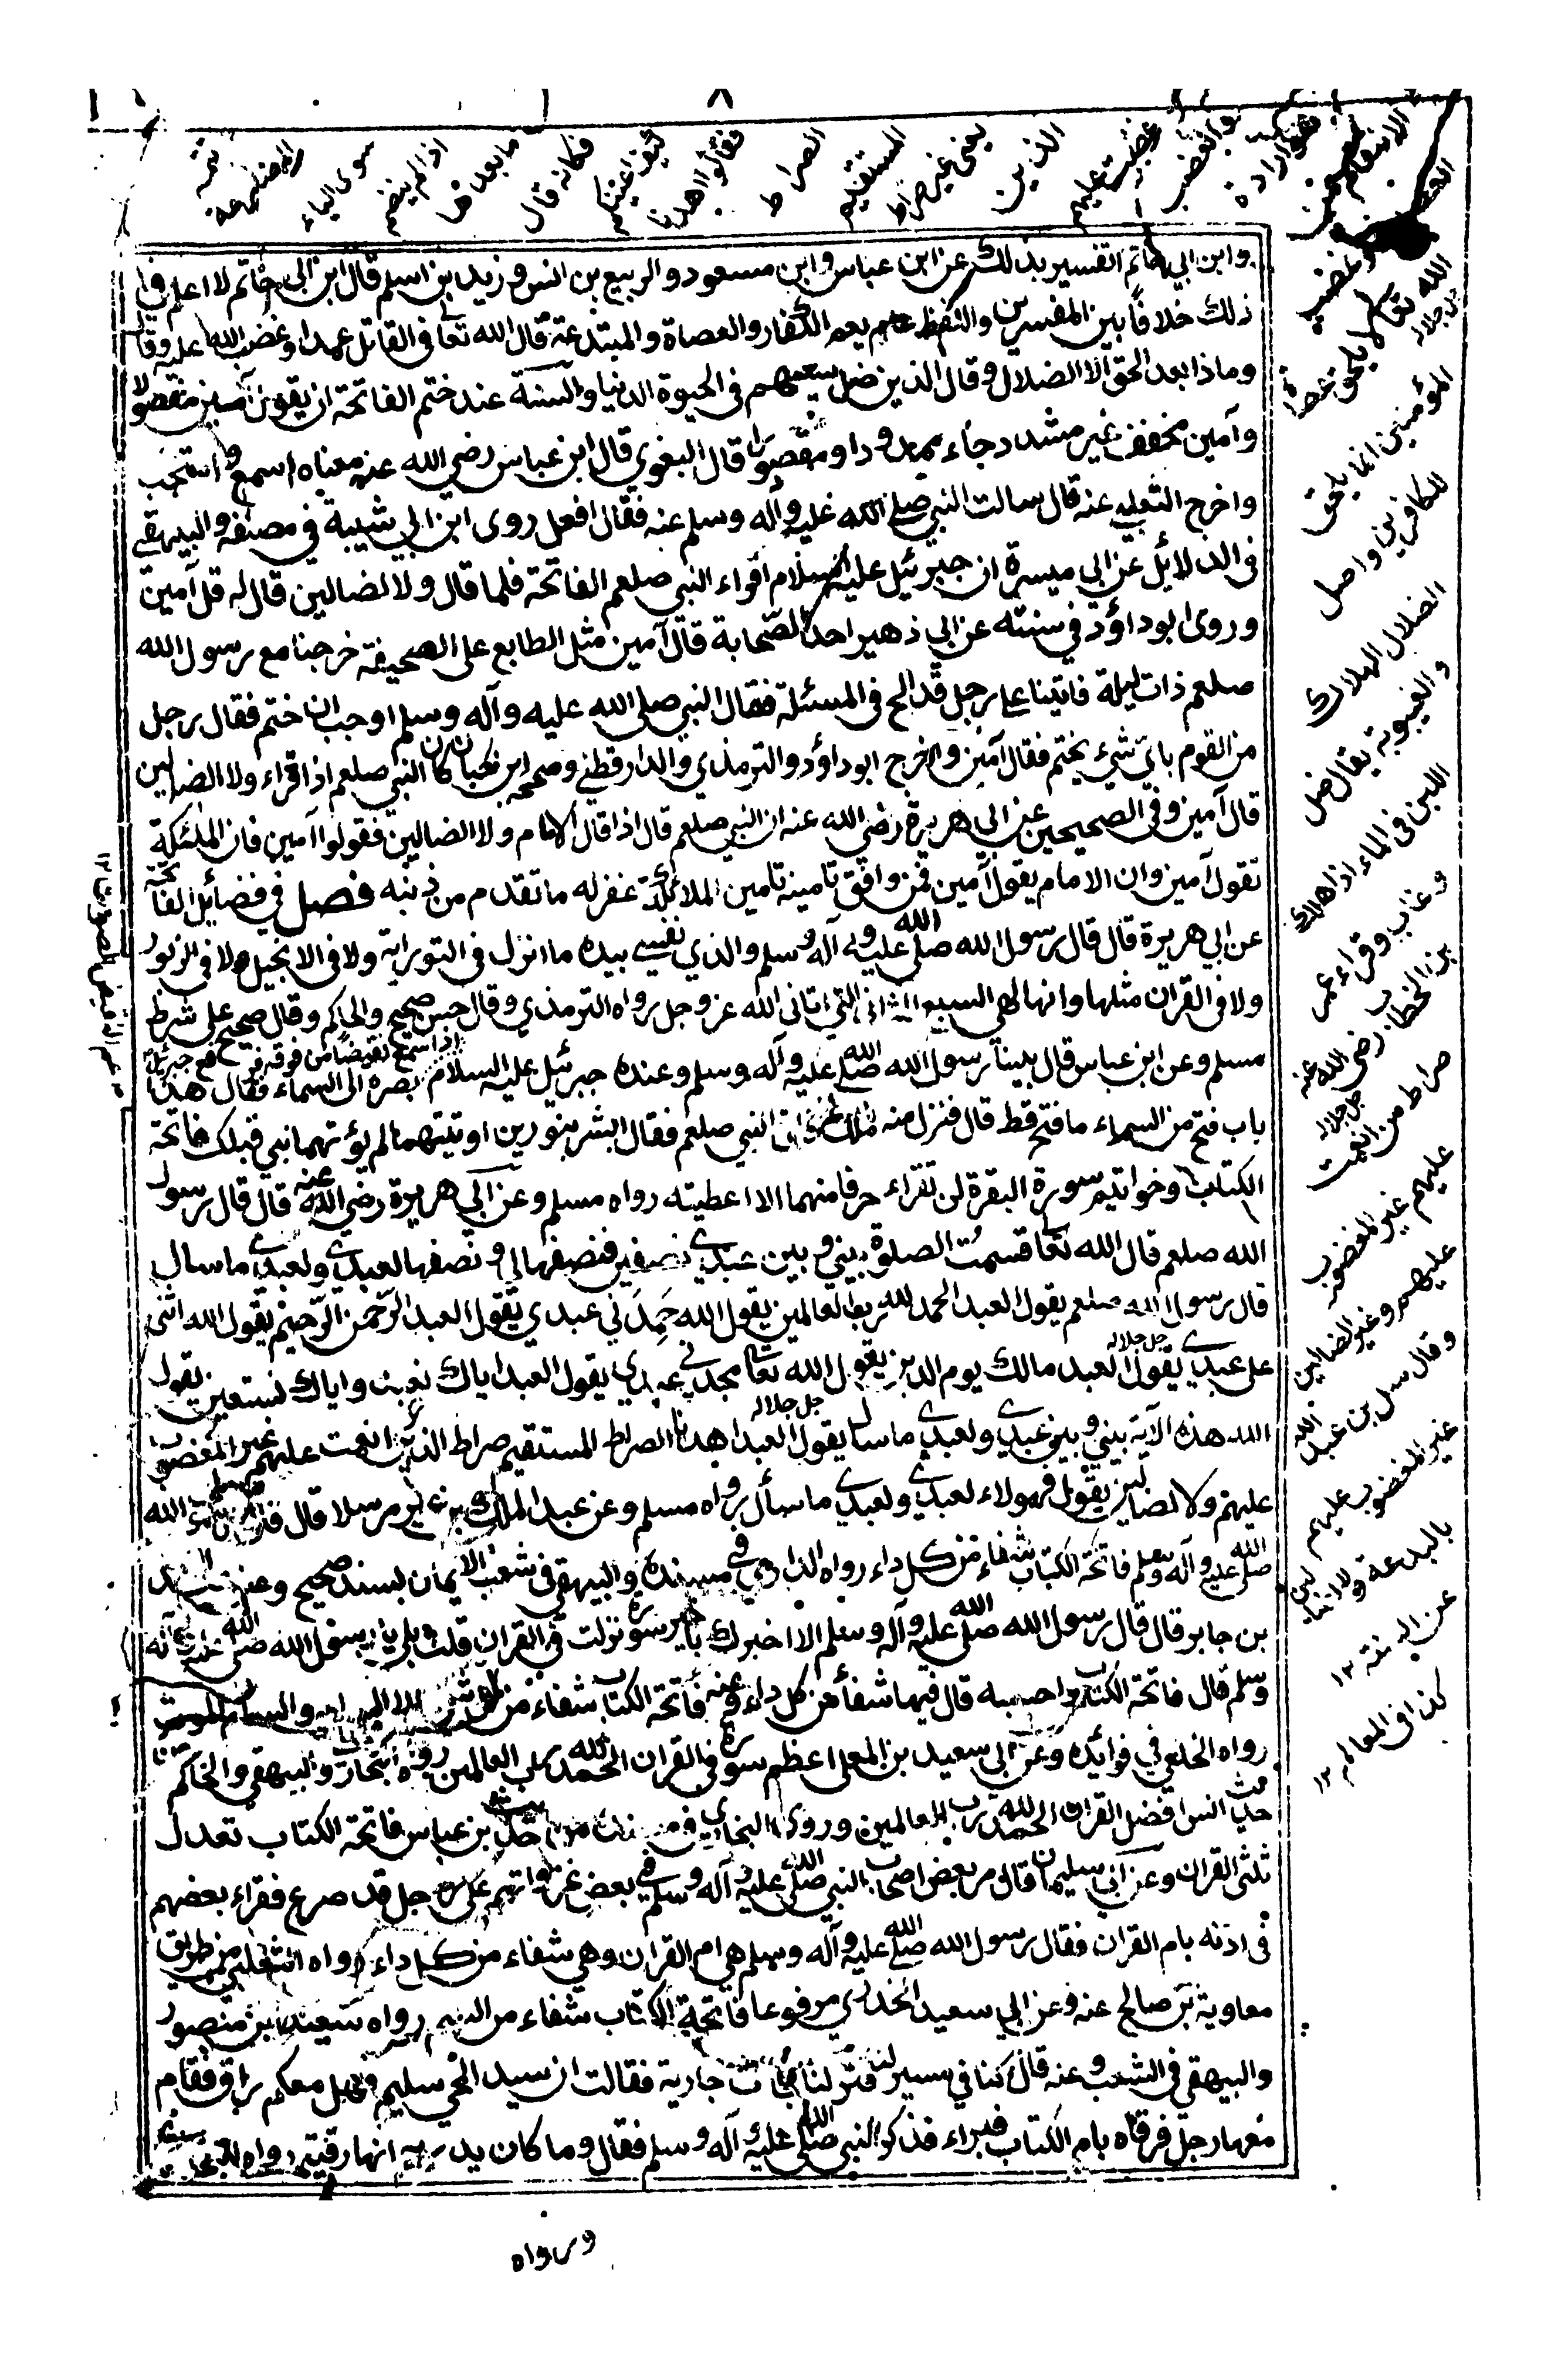 ٨
وابن ابي حاتم التفسير بذلك عن ابن عباس وابن مسعود والربيع بن انس وزيد بن اسلم قال ابن ابي حاتم لا اعلم في
ذلك خلافا بين المفسرين واللفظ عام يعم الكفار والعصاة والمبتدعة قال الله تعا في القاتل عمدا وغضب الله عليه وقال
وماذا بعد الحق الا الضلال وقال الذين ضل سعيهم في الحيوة الدنيا والسنة عند ختم الفاتحة ان يقول آمين مفصولا
وآمين مخفف غير مشدد جاء ممدودا ومقصورا قال البغوي قال ابن عباس رضي الله عنه معناه اسمع واستجب
واخرج الثعلبي عنه قال سالت النبي صلى الله عليه وآله وسلم عنه فقال افعل روى ابن ابي شيبة في مصنفه والبيهقي
في الدلائل عن ابي ميسرة ان جبرئيل عليه السلام اقراء النبي صلعم الفاتحة فلما قال ولا الضالين قال له قل آمين
وروى ابو داؤد في سننه عن ابي زهير احد الصحابة قال آمين مثل الطابع على الصحيفة خرجنا مع رسول الله
صلعم ذات ليلة فاتينا على رجل قد الح في المسئلة فقال النبي صلى الله عليه وآله وسلم اوجب ان ختم فقال رجل
من القوم باي شيء يختم فقال آمين واخرج ابو داؤد والترمذي والدارقطني وصححه ابن حبان كان النبي صلعم اذا قراء ولا الضالين
قال آمين وفي الصحيحين عن ابي هريرة رضي الله عنه ان النبي صلعم قال اذا قال الامام ولا الضالين فقولوا آمين فان الملئكة
تقول آمين وان الامام يقول آمين فمن وافق تامينه تامين الملائكة غفر له ما تقدم من ذنبه فصل في فضائل الفاتحة
عن ابي هريرة قال قال رسول الله صلى الله عليه وآله وسلم والذي نفسي بيده ما انزل في التورىة ولا في الانجيل ولا في الزبور
ولا في القران مثلها وانها لهي السبع المثاني التي اتاني الله عز وجل رواه الترمذي وقال حسن صحيح والحاكم وقال صحيح على شرط
مسلم وعن ابن عباس قال بينا رسول الله صلى الله عليه وآله وسلم وعنده جبرئيل عليه السلام اذا سمع نقيضا من فوقه فرفع جبرئيل بصره الى السماء فقال هذا
باب فتح من السماء ما فتح قط قال فنزل منه ملك فاتى النبي صلعم فقال ابشر بنورين اوتيتهما لم يؤتهما نبي قبلك فاتحة
الكتاب وخواتيم سورة البقرة لن تقراء حرفا منهما الا اعطيته رواه مسلم وعن ابي هريرة رضي الله عنه قال قال رسول
الله صلعم قال الله تعا قسمت الصلوة بيني وبين عبدي نصفين فنصفها لي ونصفها لعبدي ولعبدي ما سال
قال رسول الله صلعم يقول العبد الحمد لله رب العالمين يقول الله حمدني عبدي يقول العبد الرحمن الرحيم يقول الله اثنى
على عبدي يقول العبد مالك يوم الدين يقول الله تعا مجدني عبدي يقول العبد اياك نعبد واياك نستعين يقول
الله هذه الآية بيني وبين عبدي ولعبدي ما سال يقول العبد اهدنا الصراط المستقيم صراط الذين انعمت عليهم غير المغضوب
عليهم ولا الضالين يقول فهولاء لعبدي ولعبدي ما سأل رواه مسلم وعن عبد الملك بن عمير مرسلا قال قال رسول الله
صلى الله عليه وآله وسلم فاتحة الكتاب شفاء من كل داء رواه الدارمي في مسنده والبيهقي في شعب الايمان بسند صحيح وعن عبد الله
بن جابر قال قال رسول الله صلى الله عليه وآله وسلم الا اخبرك باخير سورة نزلت في القران قلت بلى يا رسول الله صلى الله عليه وآله
وسلم قال فاتحة الكتاب واحسبه قال فيها شفاء من كل داء وعنه فاتحة الكتاب شفاء من كل شيء الا السام والسام الموت
رواه الخلعي في فوائده وعن ابي سعيد بن المعلى اعظم سورة في القران الحمد لله رب العالمين رواه البخاري والبيهقي والحاكم من
حديث انس افضل القران الحمد لله رب العالمين وروى البخاري في مسنده من حديث بن عباس فاتحة الكتاب تعدل
ثلثي القران وعن ابي سليمان قال مر بعض اصحاب النبي صلى الله عليه وآله وسلم في بعض غزواتهم على رجل قد صرع فقراء بعضهم
في اذنه بام القران فقال رسول الله صلى الله عليه وآله وسلم هي ام القران وهي شفاء من كل داء رواه الثعلبي من طريق
معاوية بن صالح عنه وعن ابي سعيد الخدري مرفوعا فاتحة الكتاب شفاء من السم رواه سعيد بن منصور
والبيهقي في الشعب وعنه قال كنا في مسير لنا فنزلنا فجاءت جارية فقالت ان سيد الحي سليم فهل معكم راق فقام
معها رجل فرقاه بام الكتاب فبراء فذكر للنبي صلى الله عليه وآله وسلم فقال وما كان يدريه انها رقية رواه
ورواه
الله تعالى لا يلحق عصاة
المؤمنين انما يلحق
الكافرين واصل
الضلال الهلاك
والغيبوبة يقال ضل
اللبن في الماء اذا هلك
وغاب وقراء عمر
بن الخطاب رضي الله عنه
صراط من انعمت
عليهم غير المغضوب
عليهم وغير الضالين
وقال سهل بن عبد الله
غير المغضوب عليهم
بالبدعة ولا الضالين
عن السنة ١٢
كذا في المعالم ١٢